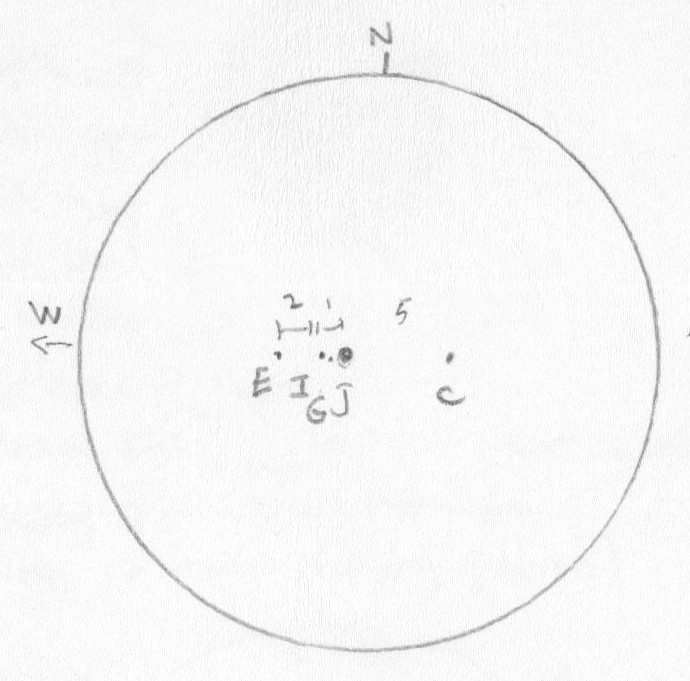 N
W
2 1 5
E I G J C